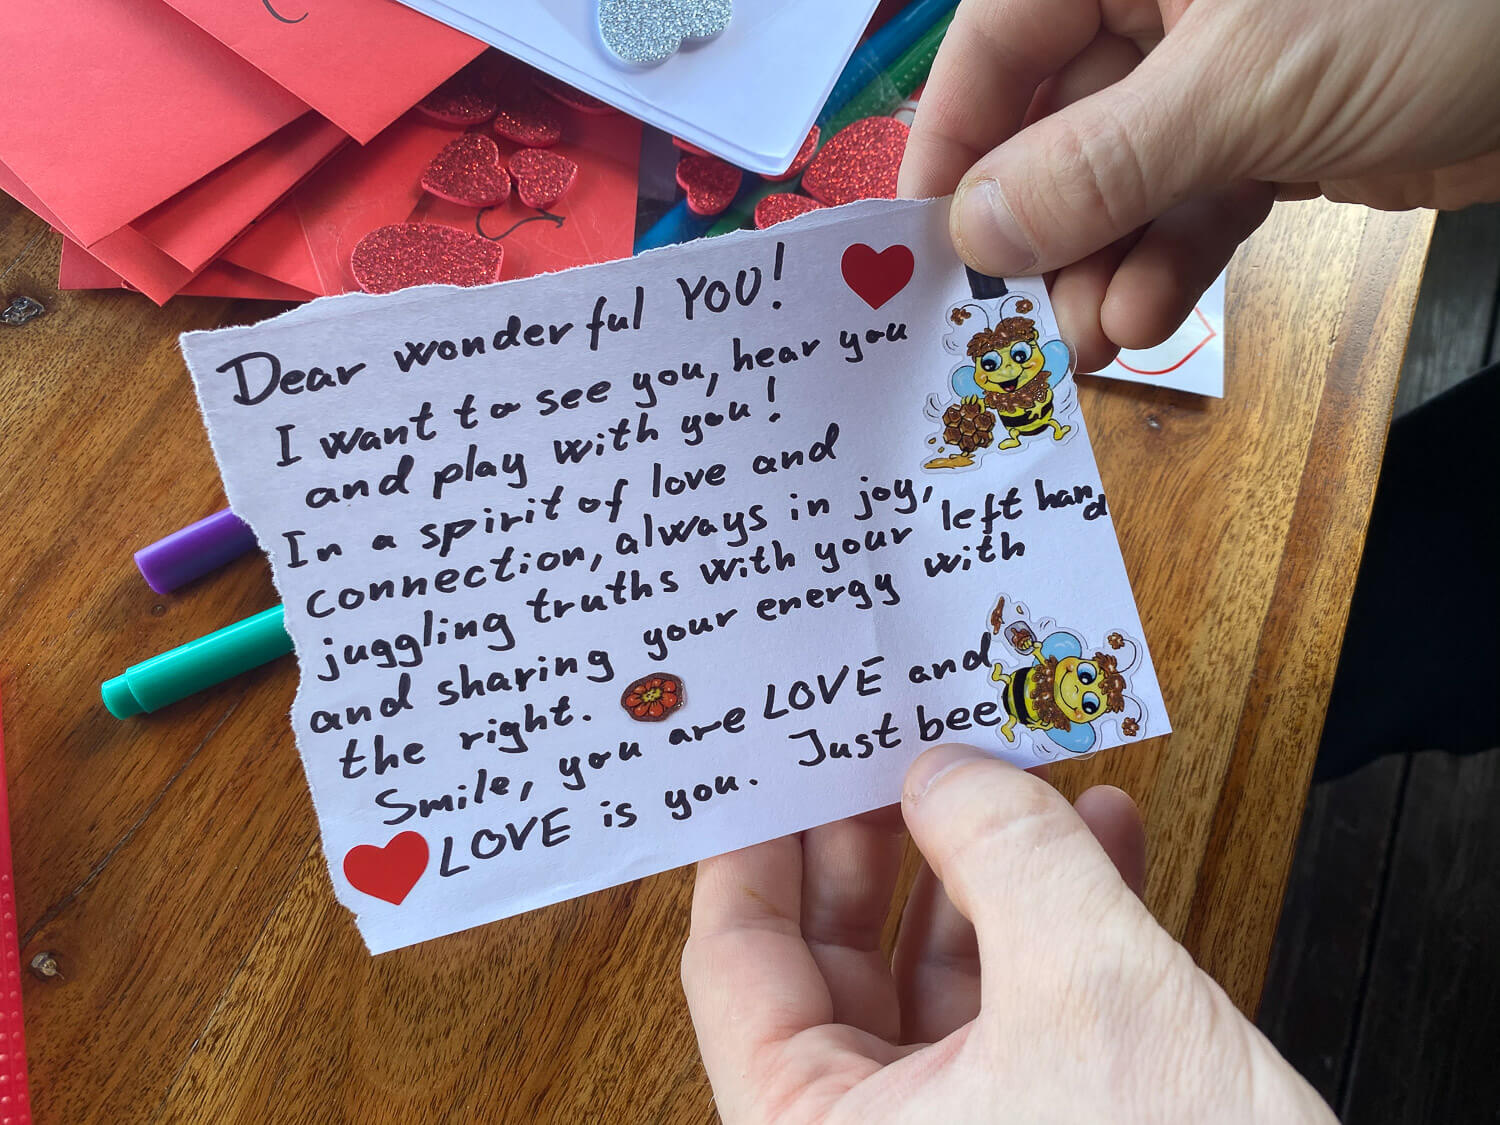 Dear wonderful YOU!
I want to see you, hear you
and play with you!
In a spirit of love and
connection, always in joy,
juggling truths with your left hand
and sharing your energy with
the right.
Smile, you are LOVE and
LOVE is you. Just bee